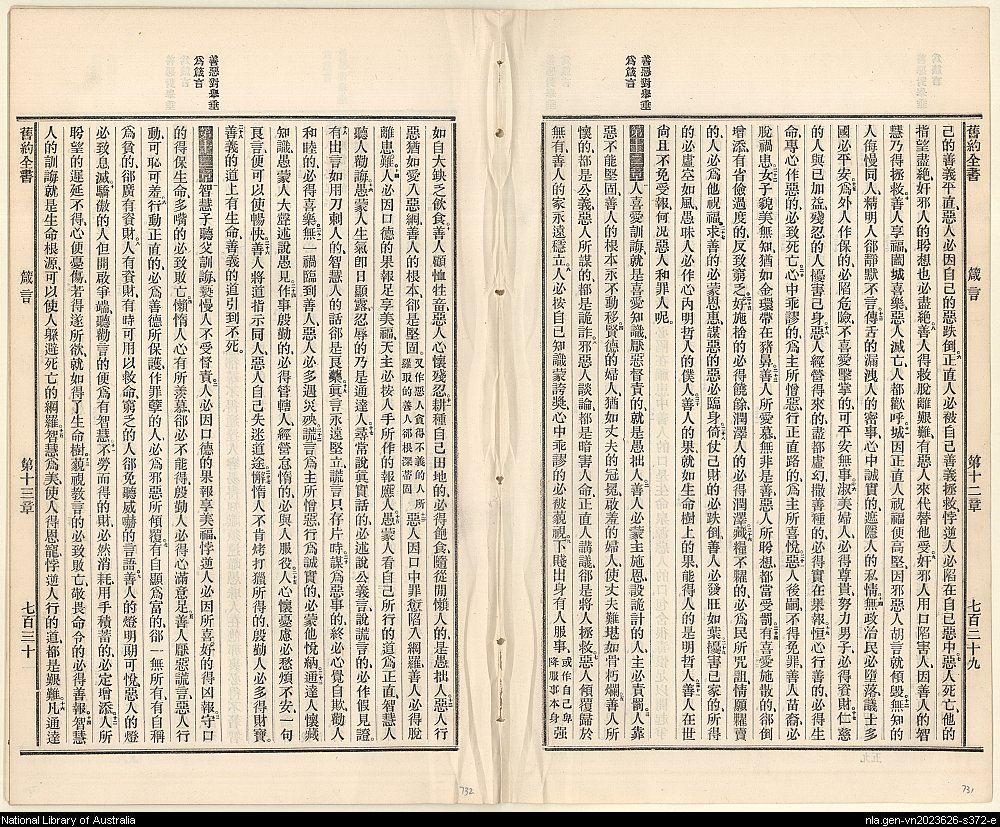 善惡對舉垂
為箴言
舊約全書 箴言 第十二章 七百二十九
己的善義平直惡人必因自己的惡跌倒正直人必被自己善義拯救悖逆人必陷在自己惡中惡人死亡他的
指望盡絕奸邪人的盼想也必盡絕善人得救脫離艱難有惡人來代替他受奸邪人用口陷害人因善人的智
慧乃得拯救善人享福闔城喜樂惡人滅亡人都歡呼城因正直人祝福便高堅因邪惡人胡言就傾毀無知的
人侮慢同人精明人卻靜默不言傳舌的漏洩人的密事心中誠實的遮隱人的私情無政治民必墮落議士多
國必平安為外人作保的必陷危險不喜愛擊掌的平安無事淑美婦人必得尊貴努力男子必得貲財仁慈
的人與己加益殘忍的人擾害己身惡人經營得來的盡都虛幻撒善種的必得實在果報恒心行善的必得生
命專心作惡的必致死亡心中乖謬的為主所憎惡行正直路的為主所喜悅惡人後嗣不得免罪善人苗裔必
脫禍患女子貌美無知猶如金環帶在豬鼻善人所愛慕無非是善惡人所盼想都當受罰有喜愛施散的卻倒
增添有省儉過度的反致窮乏好施捨的必得饒餘潤澤人的必得潤澤藏糧不糶的必為民所咒詛情願糶賣
的人必為他祝福求善的必蒙恩惠謀惡的惡必臨身倚仗己財的必跌倒善人必發旺如葉擾害己家的所得
的必虛空如風愚昧人必作心內明哲人的僕人善人的果就如生命樹上的果能得人的是明哲人善人在世
尚且不免受報何況惡人和罪人呢
第十二章 人喜愛訓誨就是喜愛知識厭惡督責的就是愚拙人善人必蒙主施恩設詭計的人主必責罰人靠
惡都不能堅固善人的根本永不動移賢德的婦人猶如丈夫的冠冕啟羞的婦人使丈夫難堪如骨朽爛善人所
懷的都是公義惡人所謀的都是詭詐邪惡人談論都是暗害人命正直人講議卻是將人拯救惡人傾覆歸於
無有善人的家永遠穩立人必按自己知識蒙誇獎心中乖謬的必被藐視下賤出身有人服事或作自己卑降服事本身強
善惡對舉垂
為箴言
如自大缺乏飲食善人顧恤牲畜惡人心懷殘忍耕種自己田地的必得飽食隨從閒懶人的是愚拙人惡人行
惡猶如愛入惡網善人的根本卻是堅固又作惡人貪得不義的人所羅取的善人卻根深蒂固惡人因口中罪愆陷入網羅善人必得脫
離患難人必因口德的果報足享美福天主必按人手所作的報應人愚蒙人看自己所行的道為正直智慧人
聽人勸誨愚蒙人生氣即日顯露忍辱的乃是通達人尋常說真實話的必述說公義言說謊言的必作假見證
有出言如用刀刺人的智慧人的話卻是良藥真言永遠堅立謊言只存片時謀為惡事的終必心覺自欺勸人
和睦的必得喜樂無一禍臨到善人惡人必多遇災殃謊言為主所憎惡行為誠實的必蒙他悅納通達人懷藏
知識愚蒙人大聲述說愚見作事殷勤的必得管轄人經營怠惰的必與人服役人心懷憂慮必愁煩不安一句
良言便可以使暢快善人將道指示同人惡人自己失迷道途懈惰人不肯烤打獵所得的殷勤人必多得財寶
善義的道上有生命善義的道引到不死
第十三章 智慧子聽父訓誨褻慢人不受督責人必因口德的果報享美福悖逆人必因所喜好的得凶報守口
的得保生命多嘴的必致敗亡懶惰人心有所羨慕卻必不能得殷勤人必得心滿意足善人厭惡謊言惡人行
動可恥可羞行動正直的必為善德所保護作罪孽的人必為邪惡所傾覆有自顯為富的卻一無所有自稱
為貧的卻廣有貲財人有貲財有時可用以救命窮乏的人卻免聽威嚇的言語善人的燈明期可悅惡人的燈
必致息滅驕傲的人但開啟爭端聽勸言的便為有智慧不勞而得的財必然消耗用手積蓄的必定增添人所
盼望的遲延不得心便憂傷若得遂所欲就如得了生命樹藐視教言的必致敗亡敬畏命令的必得善報智慧
人的訓誨就是生命根源可以使人躲避死亡的網羅智慧為美使人得恩寵悖逆人行的道都是艱難凡通達
舊約全書 箴言 第十三章 七百三十
732
731
National Library of Australia
nla.gen-vn2023626-s372-e